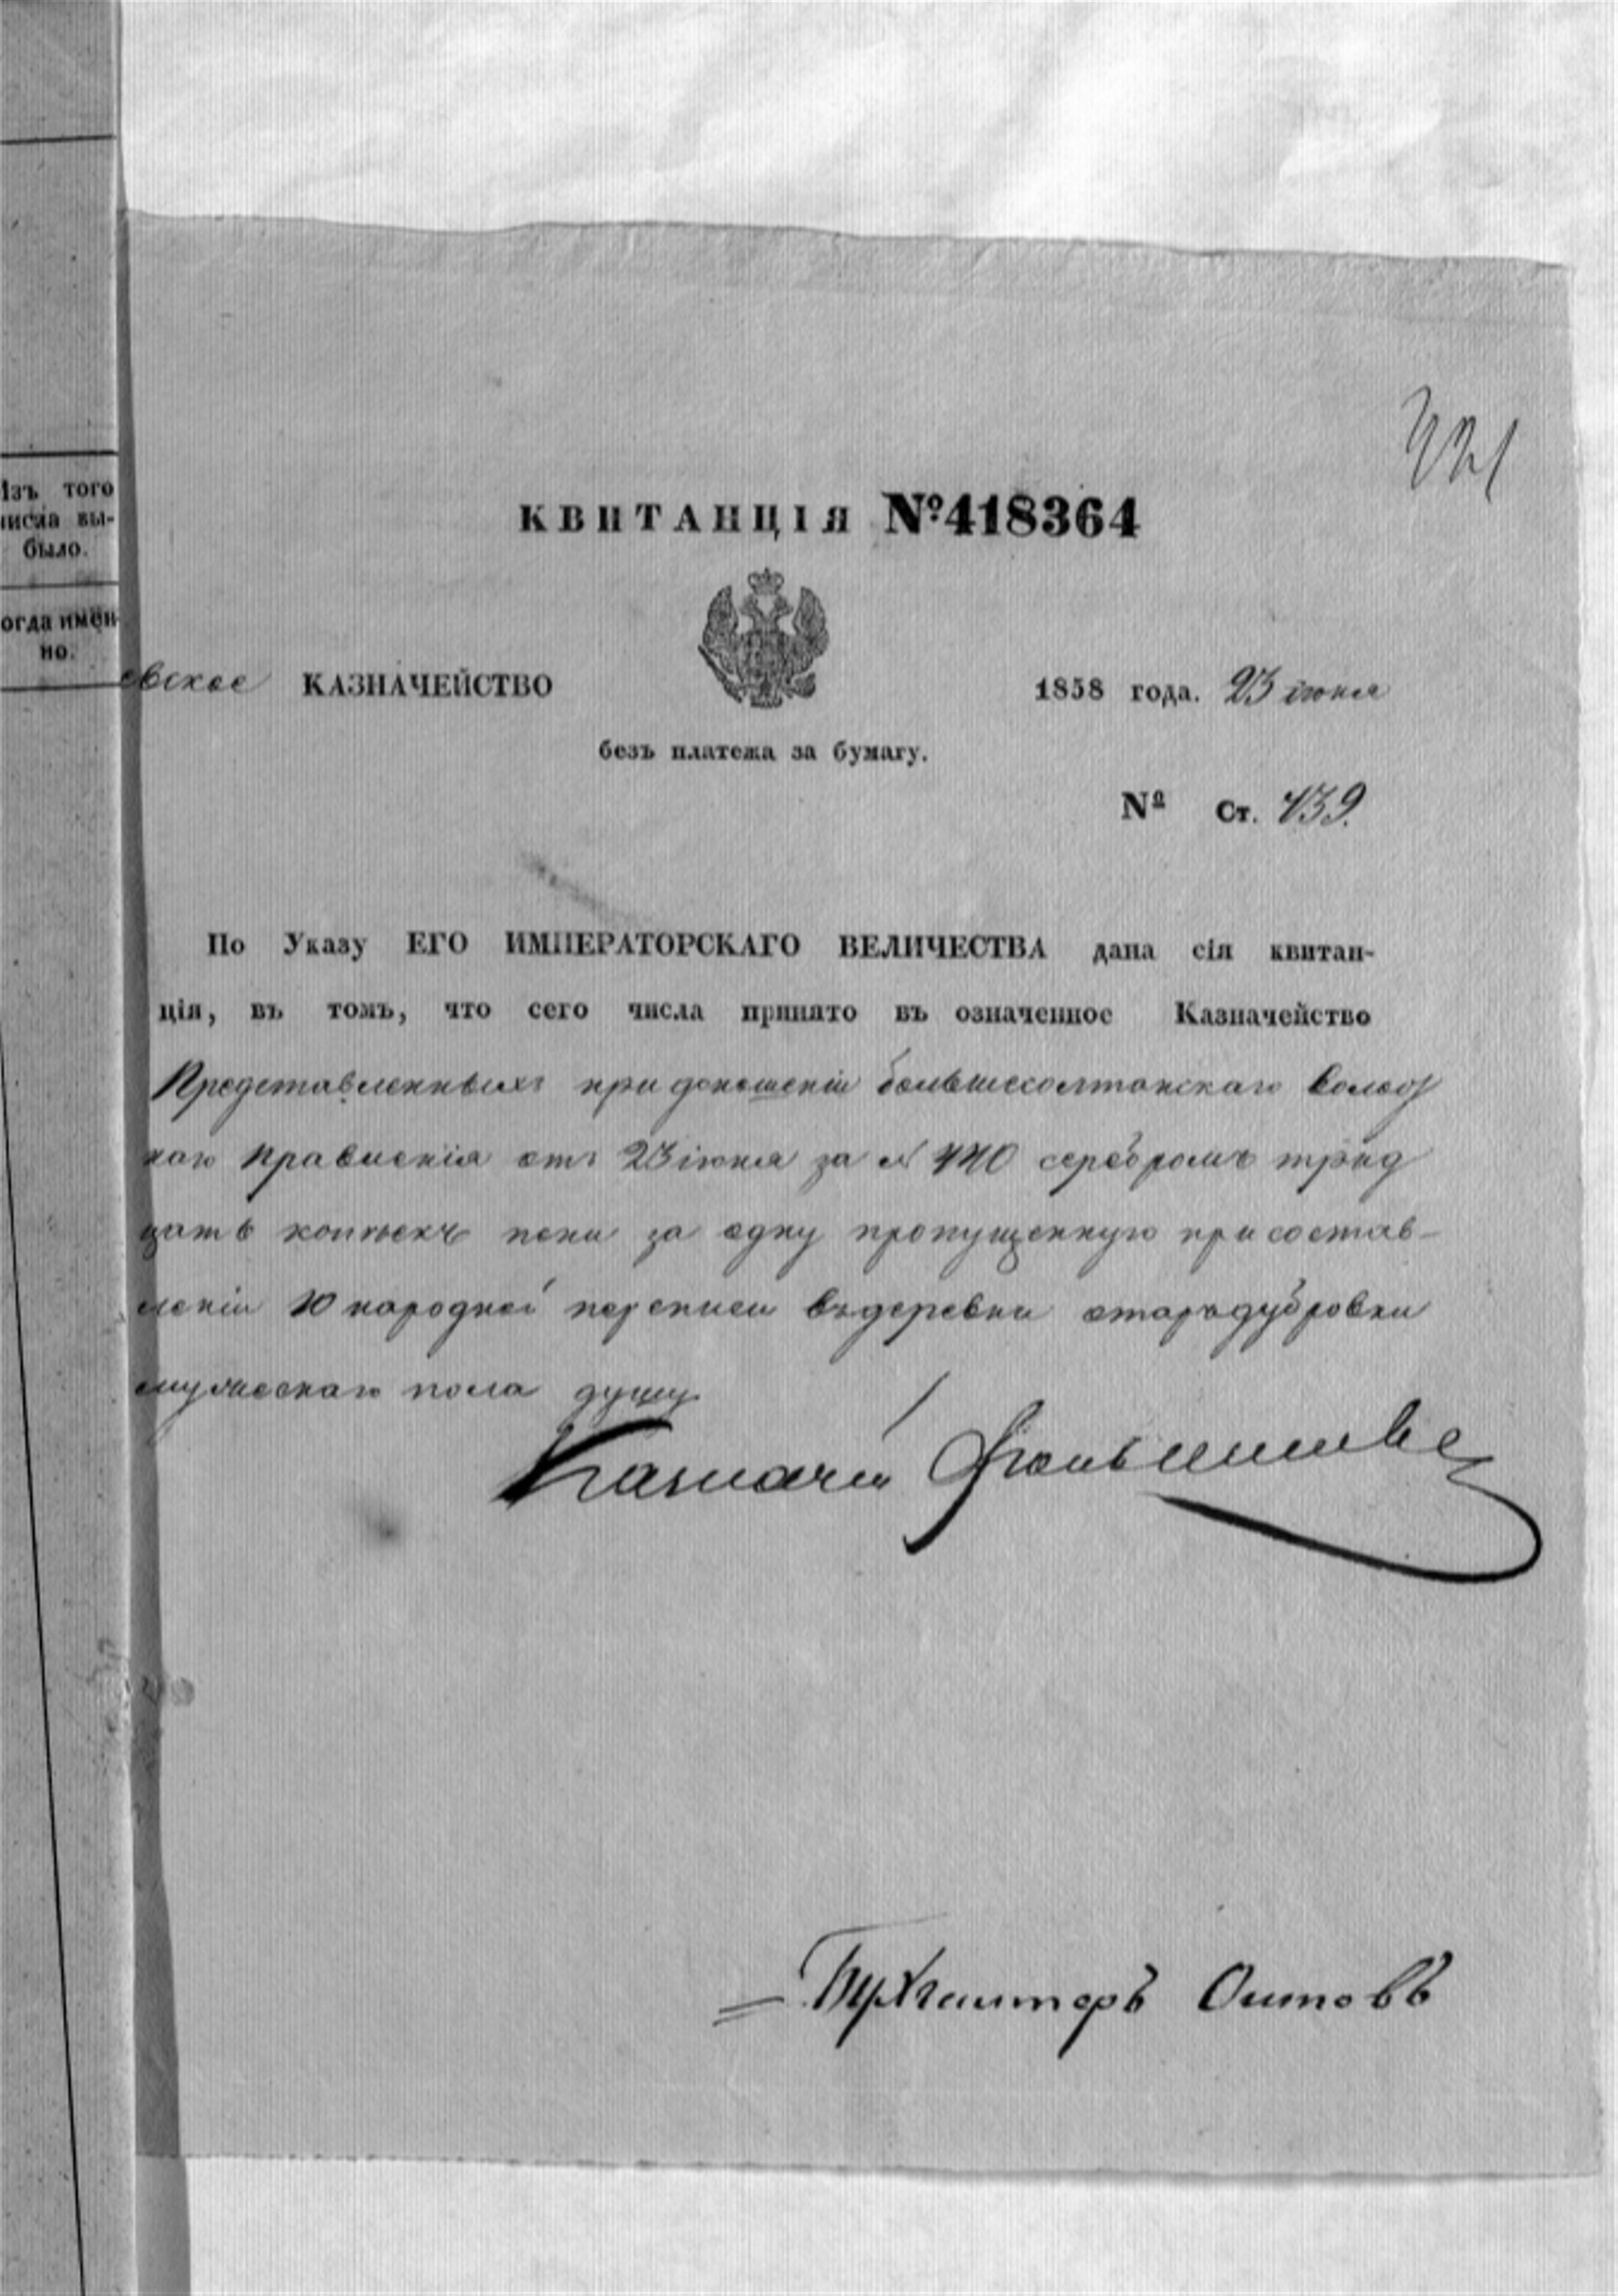 Изъ того
числа вы-
было.
огда имен-
но.
КВИТАНЦІЯ №418364
евское КАЗНАЧЕЙСТВО 1858 года. 23 іюня
безъ платежа за бумагу.
№ Ст. 439.
По Указу ЕГО ИМПЕРАТОРСКАГО ВЕЛИЧЕСТВА дана сія квитан-
ція, въ томъ, что сего числа принято въ означенное Казначейство
Представленныхъ при доношеніи большесолтанскаго волост
наго правленія отъ 23 іюня за № 440 серебромъ трид
цать копѣекъ пени за одну пропущенную при состав-
леніи 10 народной переписи въ деревни стародубровки
мужескаго пола душу
Казначей
Бухгалтеръ